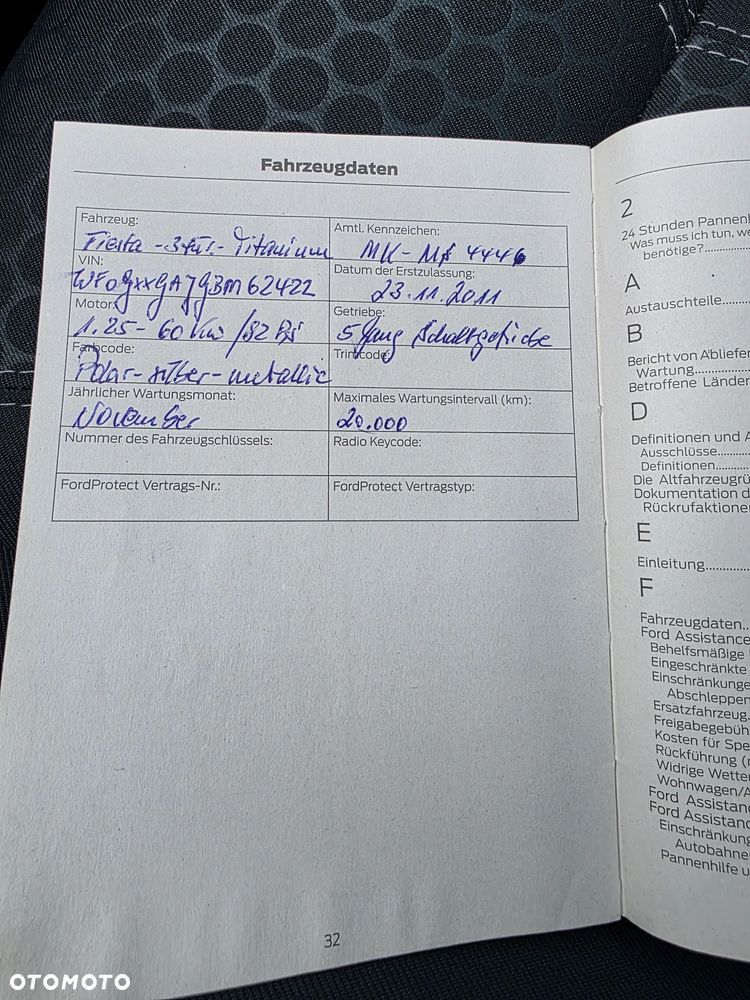 Fahrzeugdaten
Fahrzeug:
Fiesta - 3tür. - Titanium
Amtl. Kennzeichen:
MK-
VIN:
Datum der Erstzulassung:
23.11.2011
Motor:
1.25 - 60 KW / 82 PS
Getriebe:
5 Gang Schaltgetriebe
Farbcode:
Polar-silber-metallic
Trimcode:
Jährlicher Wartungsmonat:
November
Maximales Wartungsintervall (km):
20.000
Nummer des Fahrzeugschlüssels:
Radio Keycode:
FordProtect Vertrags-Nr.:
FordProtect Vertragstyp:
32
2
24 Stunden Pannenh
Was muss ich tun, we
benötige?
A
Austauschteile
B
Bericht von Abliefer
Wartung
Betroffene Länder
D
Definitionen und A
Ausschlüsse
Definitionen
Die Altfahrzeugrü
Dokumentation d
Rückrufaktione
E
Einleitung
F
Fahrzeugdaten
Ford Assistance
Behelfsmäßige
Eingeschränkte
Einschränkunge
Abschleppen
Ersatzfahrzeug
Freigabegebüh
Kosten für Spe
Rückführung (n
Widrige Wette
Wohnwagen/A
Ford Assistanc
Ford Assistanc
Einschränkung
Autobahne
Pannenhilfe u
OTOMOTO